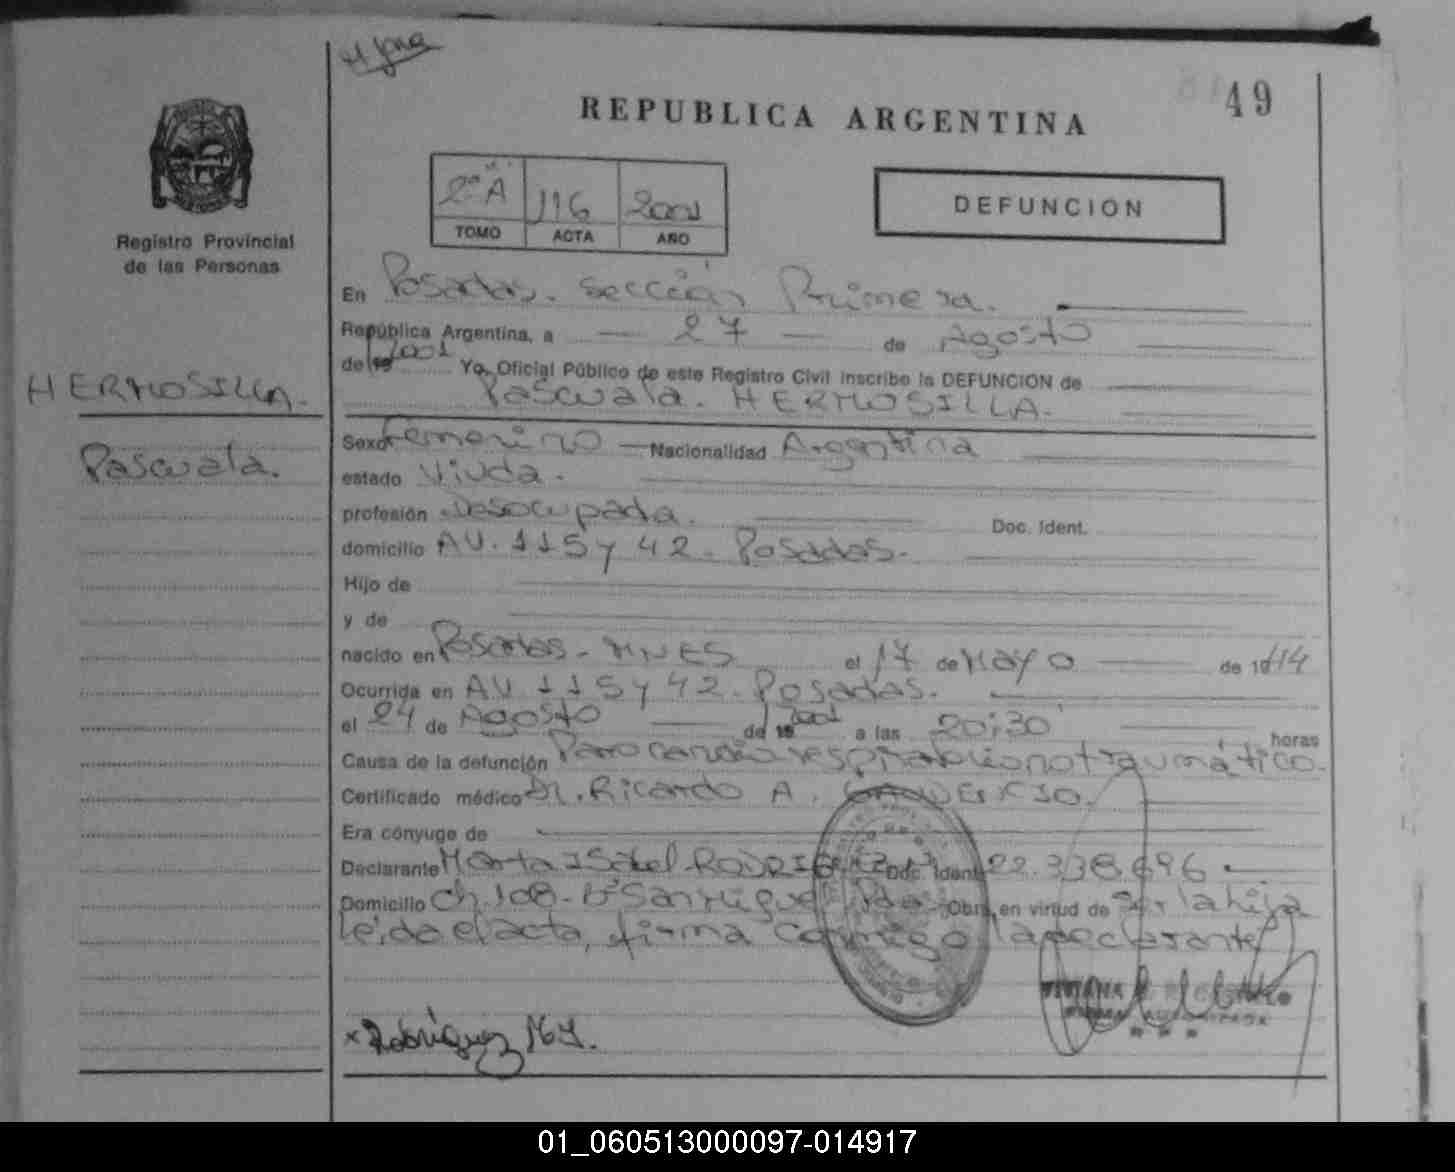 49
REPUBLICA ARGENTINA
2ª A 116 2001
TOMO ACTA AÑO
DEFUNCION
Registro Provincial
de las Personas
HERMOSILLA.
Pascuala.
En Posadas. Sección Primera.
República Argentina, a — 27 — de Agosto
de 19 2001 Yo, Oficial Público de este Registro Civil inscribo la DEFUNCION de
Pascuala. HERMOSILLA.
Sexo Femenino — Nacionalidad Argentina
estado Viuda.
profesión Desocupada. Doc. Ident.
domicilio AV. 115 y 42. Posadas.
Hijo de
y de
nacido en Posadas - MNES el 17 de Mayo — de 1914
Ocurrida en AV. 115 y 42. Posadas.
el 24 de Agosto — de 19 2001 a las 20:30 horas
Causa de la defunción Paro cardio respiratorio no traumático.
Certificado médico Dr. Ricardo A.
Era cónyuge de
Declarante Marta Isabel RODRIGUEZ Doc. Ident. 22.338.696
Domicilio Ch. 108 - Bº San Miguel Pdas. Obra en virtud de Ser la hija
leída el acta, firma conmigo la declarante
x Rodríguez M I.
01_060513000097-014917